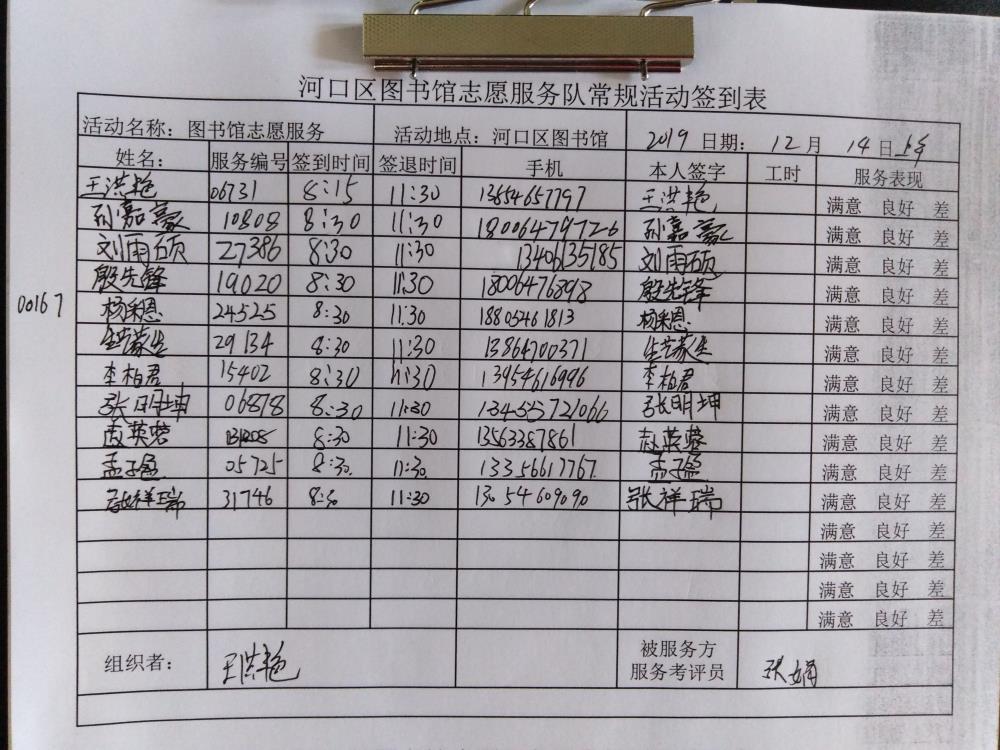 河口区图书馆志愿服务队常规活动签到表
活动名称：图书馆志愿服务 活动地点：河口区图书馆 2019 日期： 12 月 14 日 上午
姓名： 服务编号 签到时间 签退时间 手机 本人签字 工时 服务表现
王洪艳 06731 8:15 11:30 13654657797 王洪艳 满意 良好 差
孙嘉豪 10808 8:30 11:30 18006479726 孙嘉豪 满意 良好 差
刘雨硕 27386 8:30 11:30 13406135185 刘雨硕 满意 良好 差
殷先锋 19020 8:30 11:30 18006476898 殷先锋 满意 良好 差
00167 杨采恩 24525 8:30 11:30 18805461813 杨采恩 满意 良好 差
29134 8:30 11:30 13864700371 满意 良好 差
李柏君 15402 8:30 11:30 13954616996 李柏君 满意 良好 差
张明坤 06878 8:30 11:30 13455721066 张明坤 满意 良好 差
孟英蓉 8:30 11:30 13563387861 满意 良好 差
孟子盈 05725 8:30 11:30 13356617767 孟子盈 满意 良好 差
张祥瑞 31746 8:30 11:30 13054609090 张祥瑞 满意 良好 差
满意 良好 差
满意 良好 差
满意 良好 差
满意 良好 差
组织者： 王洪艳 被服务方
服务考评员 张娟